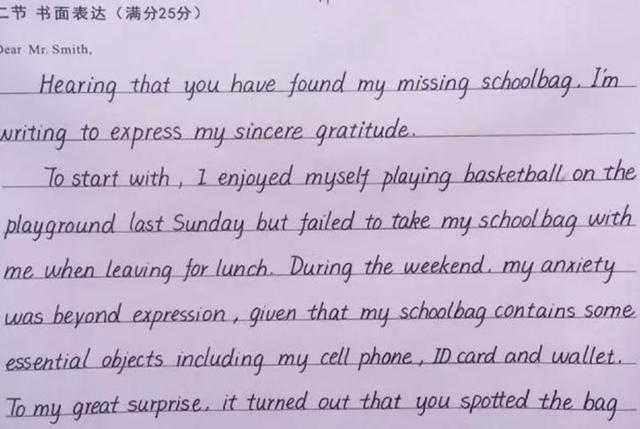 二节 书面表达（满分25分）
Dear Mr. Smith,
Hearing that you have found my missing schoolbag. I'm
writing to express my sincere gratitude.
To start with, I enjoyed myself playing basketball on the
playground last Sunday but failed to take my schoolbag with
me when leaving for lunch. During the weekend. my anxiety
was beyond expression, given that my schoolbag contains some
essential objects including my cell phone, ID card and wallet.
To my great surprise. it turned out that you spotted the bag